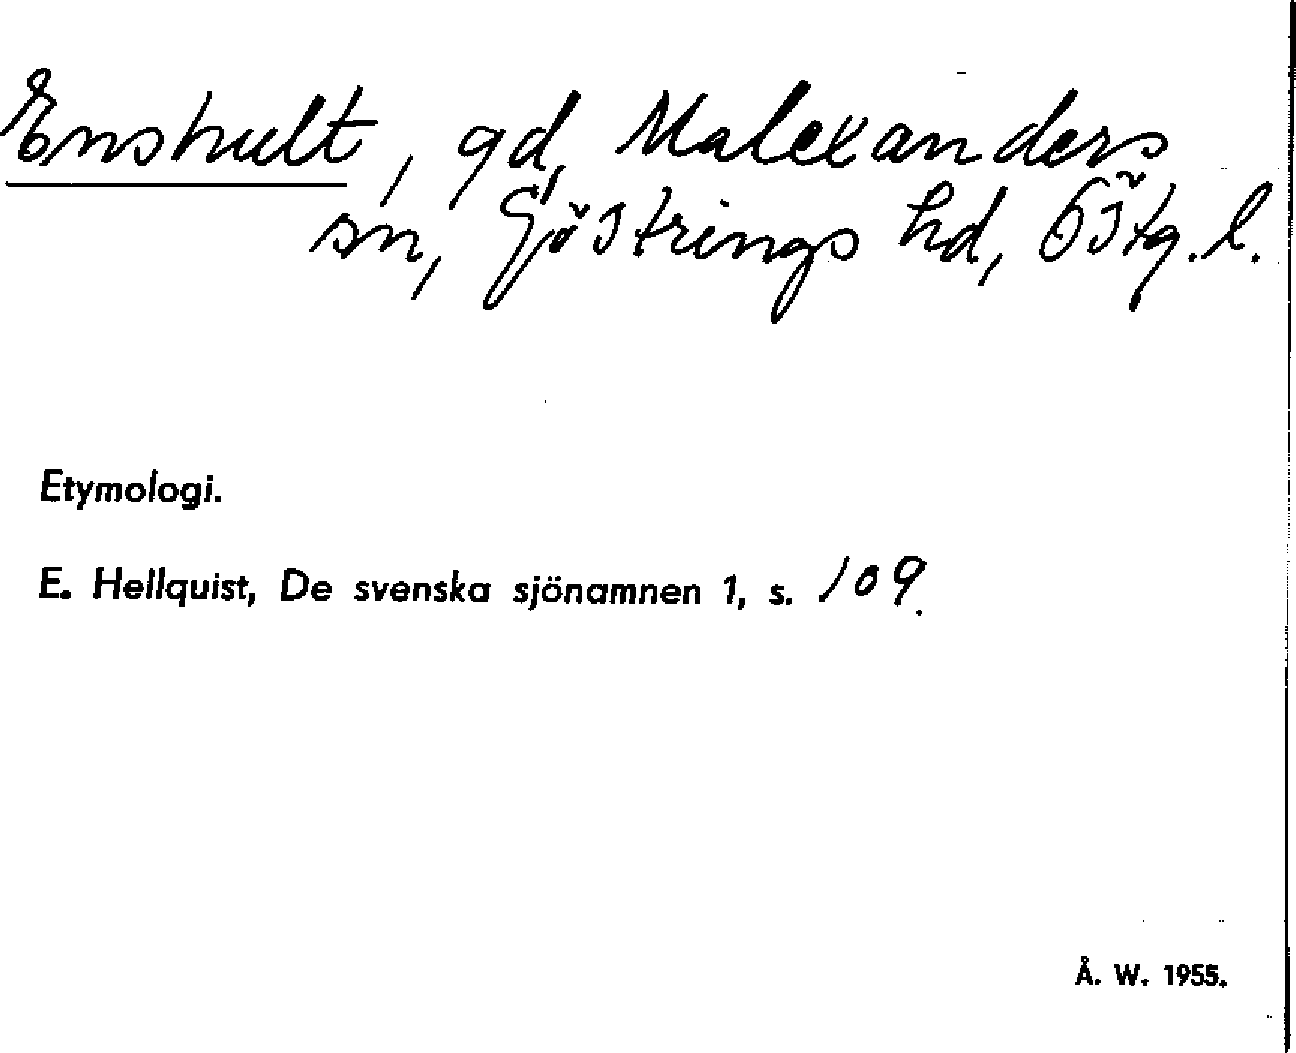 Enshult, gd, Malexanders
sn, Göstrings hd, Östg. l.
Etymologi.
E. Hellquist, De svenska sjönamnen 1, s. 109.
Å. W. 1955.